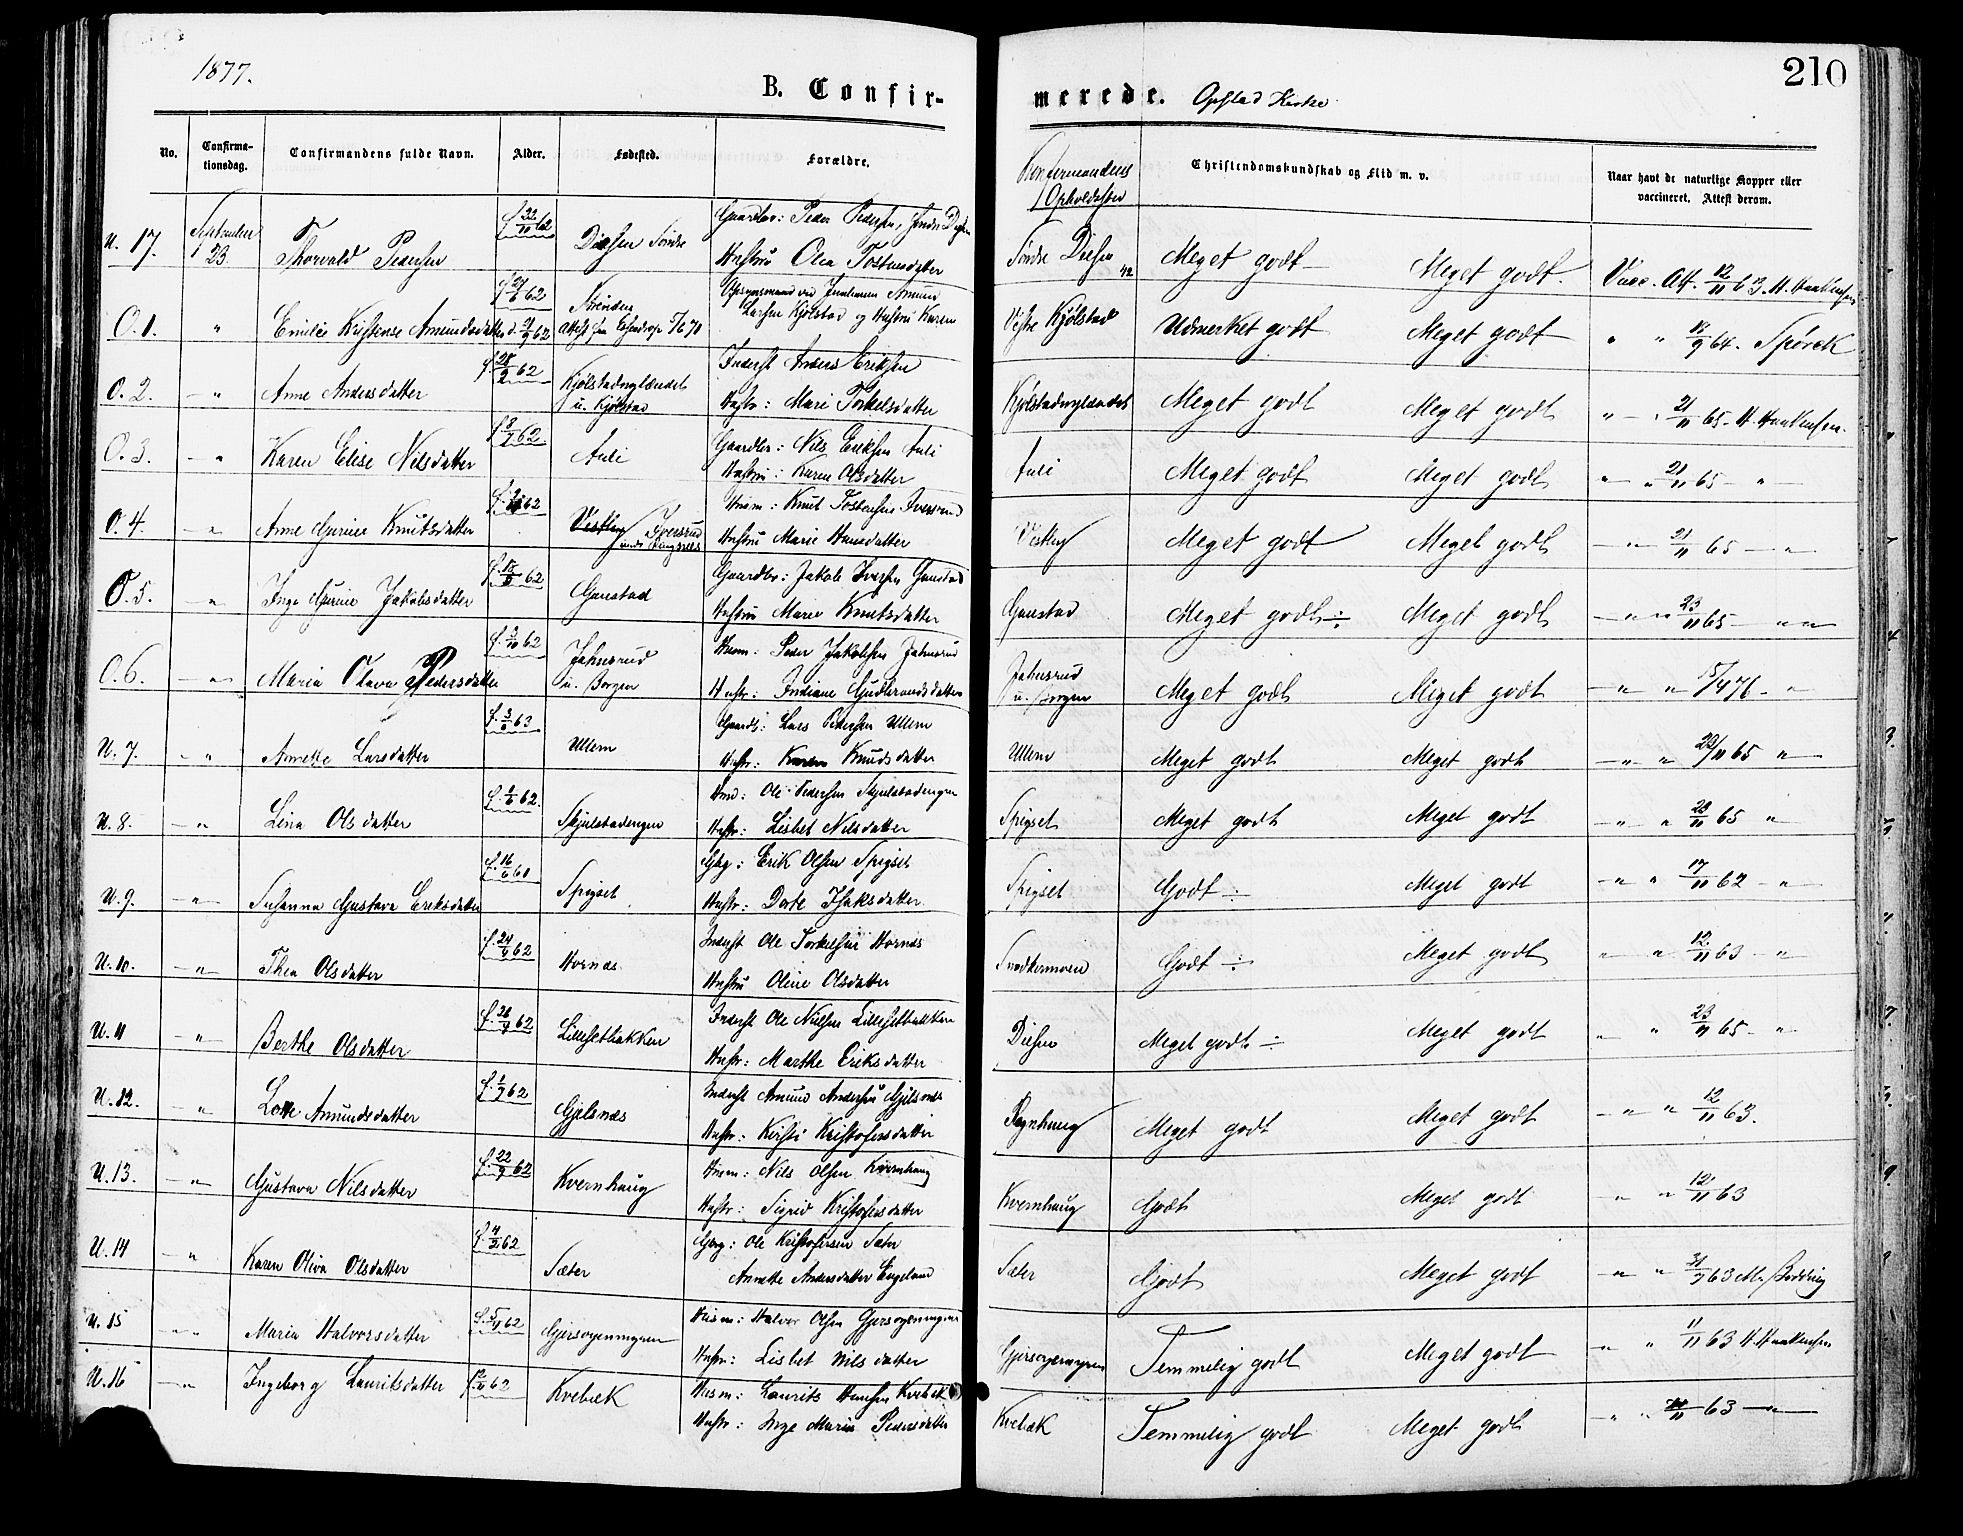 1877.
B. Confir-
merede. Opstad Kirke
210
No.
Confirma-
tionsdag.
Confirmandens fulde Navn.
Alder.
Fødested.
Forældre.
Konfirmandens
Opholdssted
Christendomskundskab og Flid m. v.
Naar havt de naturlige Kopper eller
vaccineret. Attest derom.
U. 17. September 23. Thorvald Pedersen f 22/11 62 Diesen Søndre Gaardbr: Peder Pedersen, Søndre Diesen
Hustru Olea Tostensdatter Søndre Diesen Meget godt Meget godt. Vacc. Att. 12/11 63. H. Haakensen
O. 1. " Emilie Kristense Amundsdatter f 62 d. 62 62 Attest fra 5/6 70 Opfostret ved Amund
Larsen Kjølstad og Hustru Karen Vestre Kjølstad Udmerket godt Meget godt " " 64. Spørck
O. 2. " Anne Andersdatter f 28/2 62 Kjølstadnylændet
u. Kjølstad Inderst Anders Eriksen
Hustr: Mari Torkelsdatter Kjølstadnylændet Meget godt Meget godt " 21/11 65. H. Haakensen.
O. 3. " Karen Elise Nilsdatter f 8/7 62 Auli Gaardbr: Nils Eriksen Auli
Hustru: Karen Olsdatter Auli Meget godt Meget godt " " 21/11 65 "
O. 4. " Anne Gurine Knutsdatter f. 62 Iversrud
under Husm: Knut Tostensen Iversrud
Hustru Marie Hansdatter Meget godt Meget godt " 21/11 65 "
O. 5. " Inge Gurine Jakobsdatter f. 18/8 62 Gaustad Gaardbr: Jakob Iversen Gaustad
Hustru Marie Knutsdatter Gaustad Meget godt ÷ Meget godt " " 23/11 65 " "
O. 6. " Maria Olava Pedersdatter f. 62 Jahnsrud
u. Borgen Husm: Peder Jakobsen Jahnsrud
Hustr: Indiane Gudbrandsdatter Jahnsrud
u. Borgen Meget godt Meget godt " " 76 "
U. 7. " Annette Larsdatter f. 63 Ullern Gaardb: Lars Pedersen Ullern
Hustr: Karen Knudsdatter Ullern Meget godt Meget godt " " 22/11 65 "
U. 8. " Lina Olsdatter f. 1/6 62. Skjulstadengen Husm: Ole Pedersen Skjulstadengen
Hustr: Lisbet Nilsdatter Spigset Meget godt Meget godt " " 23/11 65 "
U. 9. " Susanna Gustava Eriksdatter f. 16/6 61 Spigset Gbrg: Erik Olsen Spigset
Hustr: Dorte Isaksdatter. Spigset Godt ÷ Meget godt " " 17/11 62 "
U. 10. " Thea Olsdatter f. 62 Hornæs Inderst Ole Torkelsen Hornæs
Hustru Oline Olsdatter Snedkermoen Godt ÷ Meget godt " " 12/11 63 "
U. 11 " Berthe Olsdatter f. 62 Lillesetbakken Inderst Ole Nielsen Lillesetbakken
Hustr: Marthe Eriksdatter Diesen Meget godt ÷ Meget godt " " 23/11 65 "
U. 12. " Lotte Amundsdatter f. 1/7 62 Gjølsnæs Inderst Amund Andersen Gjølsnæs
Hustr: Kirsti Kristofersdatter Meget godt Meget godt " " 12/11 63.
U. 13. " Gustava Nilsdatter f. 22/9 62 Kvernhaug Husm: Nils Olsen Kvernhaug
Hustr: Sigrid Kristofersdatter Kvernhaug Godt Meget godt " " 12/11 63
U. 14 " Karen Oliva Olsdatter f. 4/2 62 Sæter Gbrg: Ole Kristofersen Sæter
Annette Andersdatter Engeland Sæter Godt Meget godt " " 63 M. Bødding
U. 15 " " Maria Halvorsdatter f. 62 Gjersøyenmyren Husm: Halvor Olsen Gjersøyenmyren
Hustr: Lisbet Nilsdatter Gjersøyenmyren Temmelig godt Meget godt " " 11/11 63 H. Haakensen
U. 16 " Ingeborg Lauritsdatter f 62 Kvebæk Husm: Laurits Hansen Kvebæk
Hustr: Inge Maria Pedersdatter Kvebæk Temmelig godt Meget godt " " 63 "